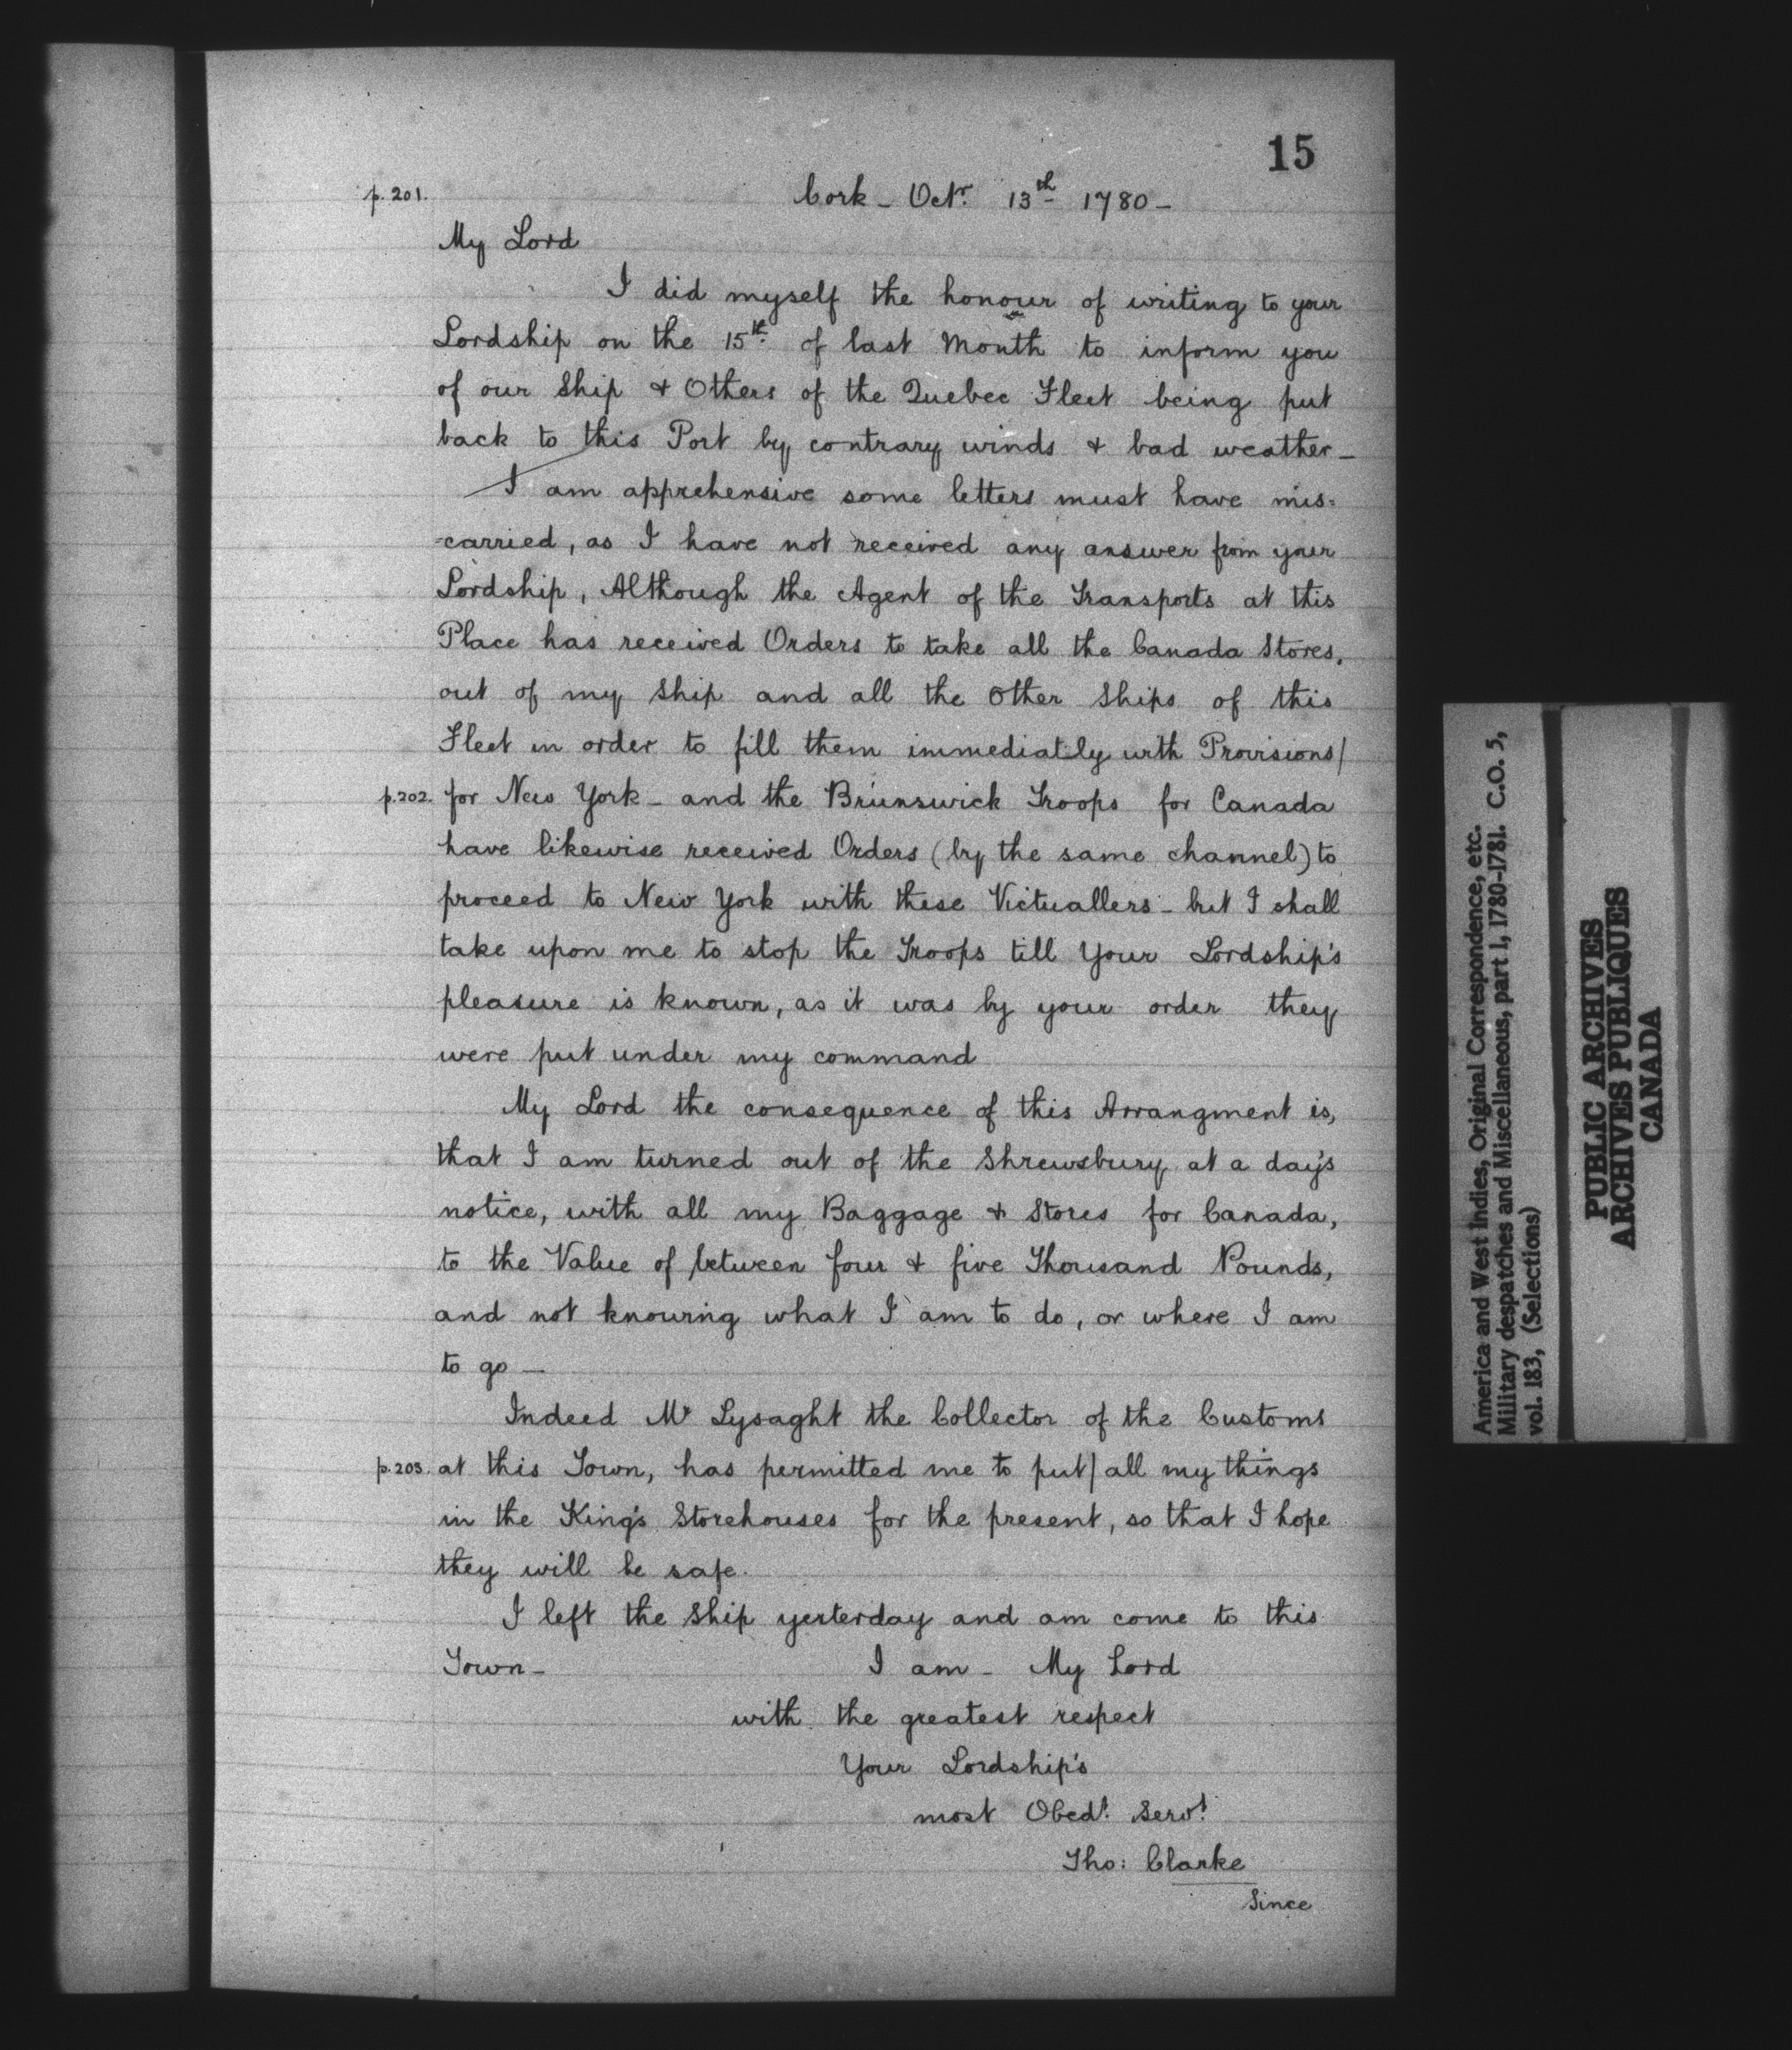 15
p. 201. Cork - Octr. 13th 1780 -
My Lord
I did myself the honour of writing to your
Lordship on the 15th. of last Month to inform you
of our Ship & Others of the Quebec Fleet being put
back to this Port by contrary winds & bad weather -
I am apprehensive some letters must have mis=
=carried, as I have not received any answer from your
Lordship, Although the Agent of the Transports at this
Place has received Orders to take all the Canada Stores,
out of my Ship and all the Other Ships of this
Fleet in order to fill them immediatly with Provisions/
p. 202. for New York - and the Brunswick Troops for Canada
have likewise received Orders (by the same channel) to
proceed to New York with these Victuallers - but I shall
take upon me to stop the Troops till Your Lordship's
pleasure is known, as it was by your order they
were put under my command
My Lord the consequence of this Arrangment is,
that I am turned out of the Shrewsbury at a day's
notice, with all my Baggage & Stores for Canada,
to the Value of between four & five Thousand Pounds,
and not knowing what I am to do, or where I am
to go -
Indeed Mr Lysaght the Collector of the Customs
p. 203. at this Town, has permitted me to put/ all my things
in the King's Storehouses for the present, so that I hope
they will be safe.
I left the Ship yesterday and am come to this
Town - I am - My Lord
with the greatest respect
Your Lordship's
most Obedt. Servt.
Tho: Clarke
Since
America and West Indies, Original Correspondence, etc.
Military despatches and Miscellaneous, part 1, 1780-1781. C.O. 5,
vol. 183, (Selections)
PUBLIC ARCHIVES
ARCHIVES PUBLIQUES
CANADA